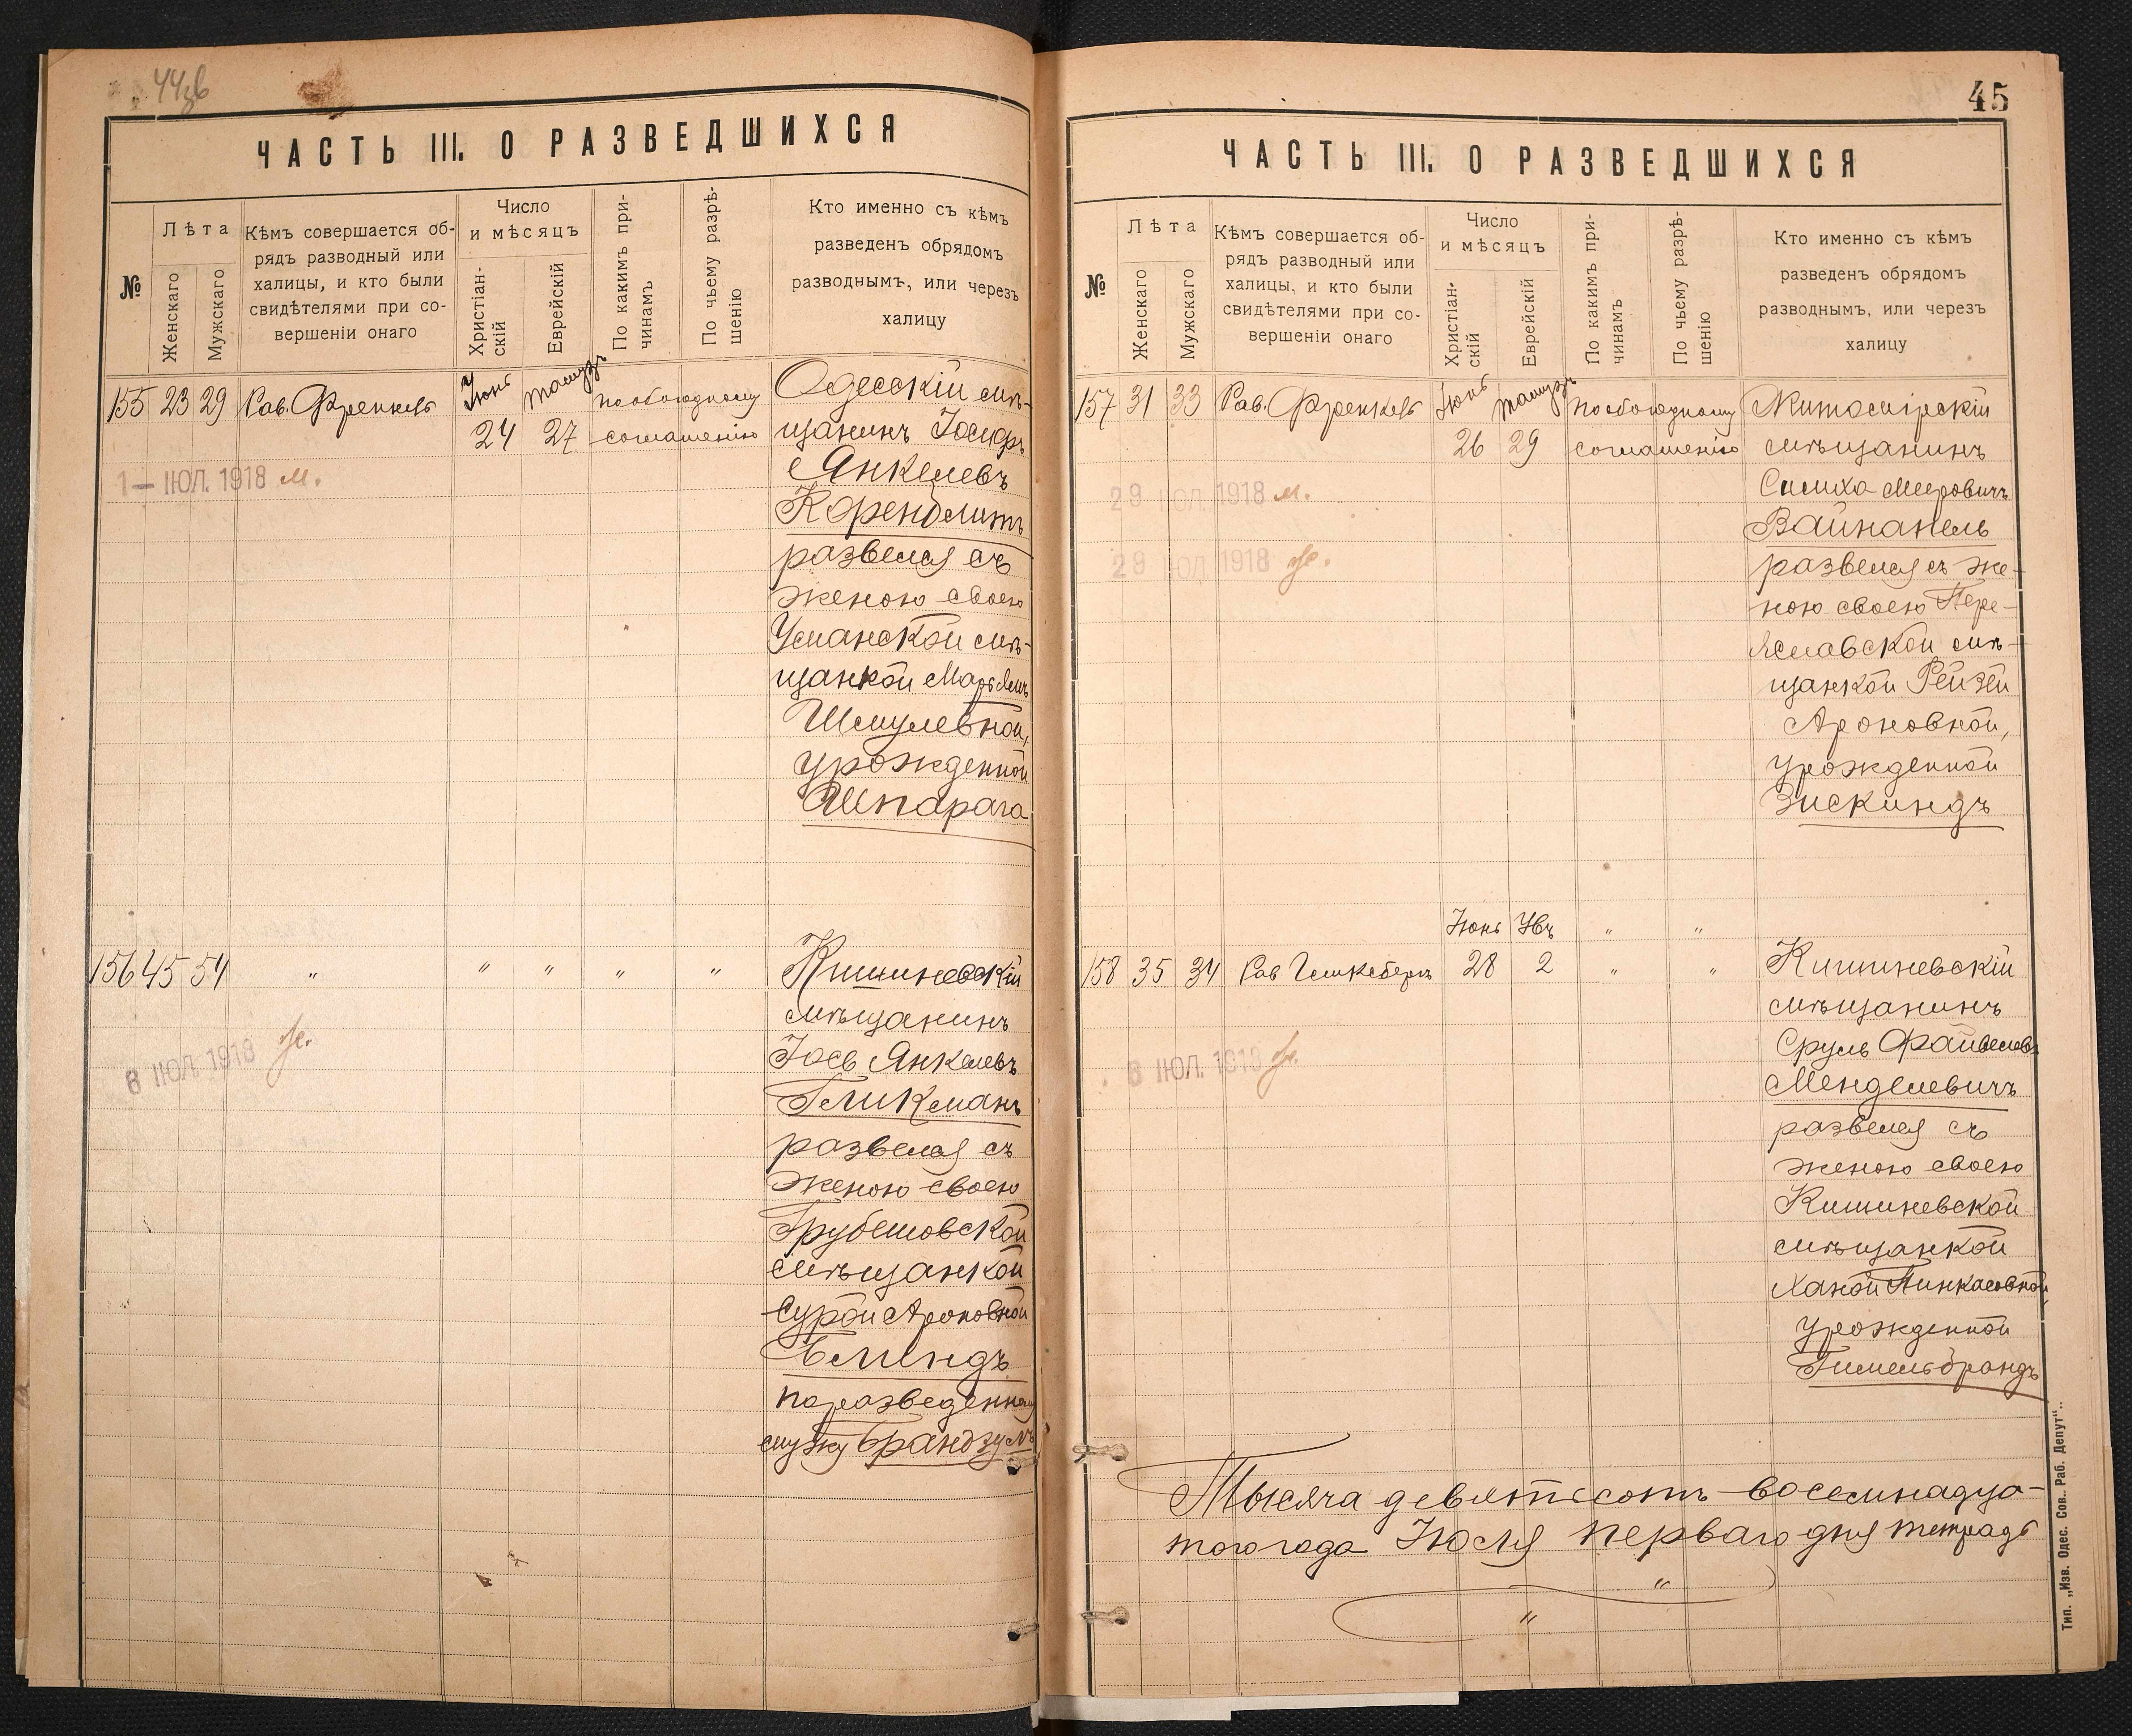 44об
ЧАСТЬ III. О РАЗВЕДШИХСЯ
№
Лѣта
Женскаго
Мужскаго
Кѣмъ совершается об-
рядъ разводный или
халицы, и кто были
свидѣтелями при со-
вершеніи онаго
Число
и мѣсяцъ
Христіан-
скій
Еврейскій
По какимъ при-
чинамъ
По чьему разрѣ-
шенію
Кто именно съ кѣмъ
разведенъ обрядомъ
разводнымъ, или черезъ
халицу
155 23 29 Рав. Френкель Іюнь 24 Тамузъ 27
по обоюдному
соглашенію
Одесскій мѣ-
щанинъ Іосифъ
Янкелевъ
Коренблитъ
развелся съ
женою своею
Уманской мѣ-
щанкой Марьямъ
Шмулевной,
урожденной
Шпарага
1 – ІЮЛ. 1918 м.
156 45 54 " " " " "
Кишиневскій
мѣщанинъ
Іось Янкелевъ
Гликманъ
развелся съ
женою своею
Грубешовской
мѣщанкой
Сурой Ароновной
Блиндъ
по разведенному
мужу Брандзумъ
6 ІЮЛ. 1918 ж.
45
ЧАСТЬ III. О РАЗВЕДШИХСЯ
№
Лѣта
Женскаго
Мужскаго
Кѣмъ совершается об-
рядъ разводный или
халицы, и кто были
свидѣтелями при со-
вершеніи онаго
Число
и мѣсяцъ
Христіан-
скій
Еврейскій
По какимъ при-
чинамъ
По чьему разрѣ-
шенію
Кто именно съ кѣмъ
разведенъ обрядомъ
разводнымъ, или черезъ
халицу
157 31 33 Рав. Френкель Іюнь 26 Тамузъ 29
по обоюдному
соглашенію
Житомірскій
мѣщанинъ
Симха Мееровичъ
Вайнапель
развелся съ же-
ною своею Пере-
яславской мѣ-
щанкой Рейзей
Ароновной,
урожденной
Зискиндъ
29 ІЮЛ. 1918 м.
29 ІЮЛ. 1918 ж.
Іюнь Увъ " "
158 35 34 Рав 28 2 " "
Кишиневскій
мѣщанинъ
Сруль Файвелевъ
Менделевичъ
развелся съ
женою своею
Кишиневской
мѣщанкой
Ханой Пинкасовной,
урожденной
Гимельбрандъ
6 ІЮЛ. 1918 ж.
Тысяча девятьсотъ восемнадца-
того года Іюля перваго дня тетрадь
"
"
Тип. „Изв. Одес. Сов. Раб. Депут“..